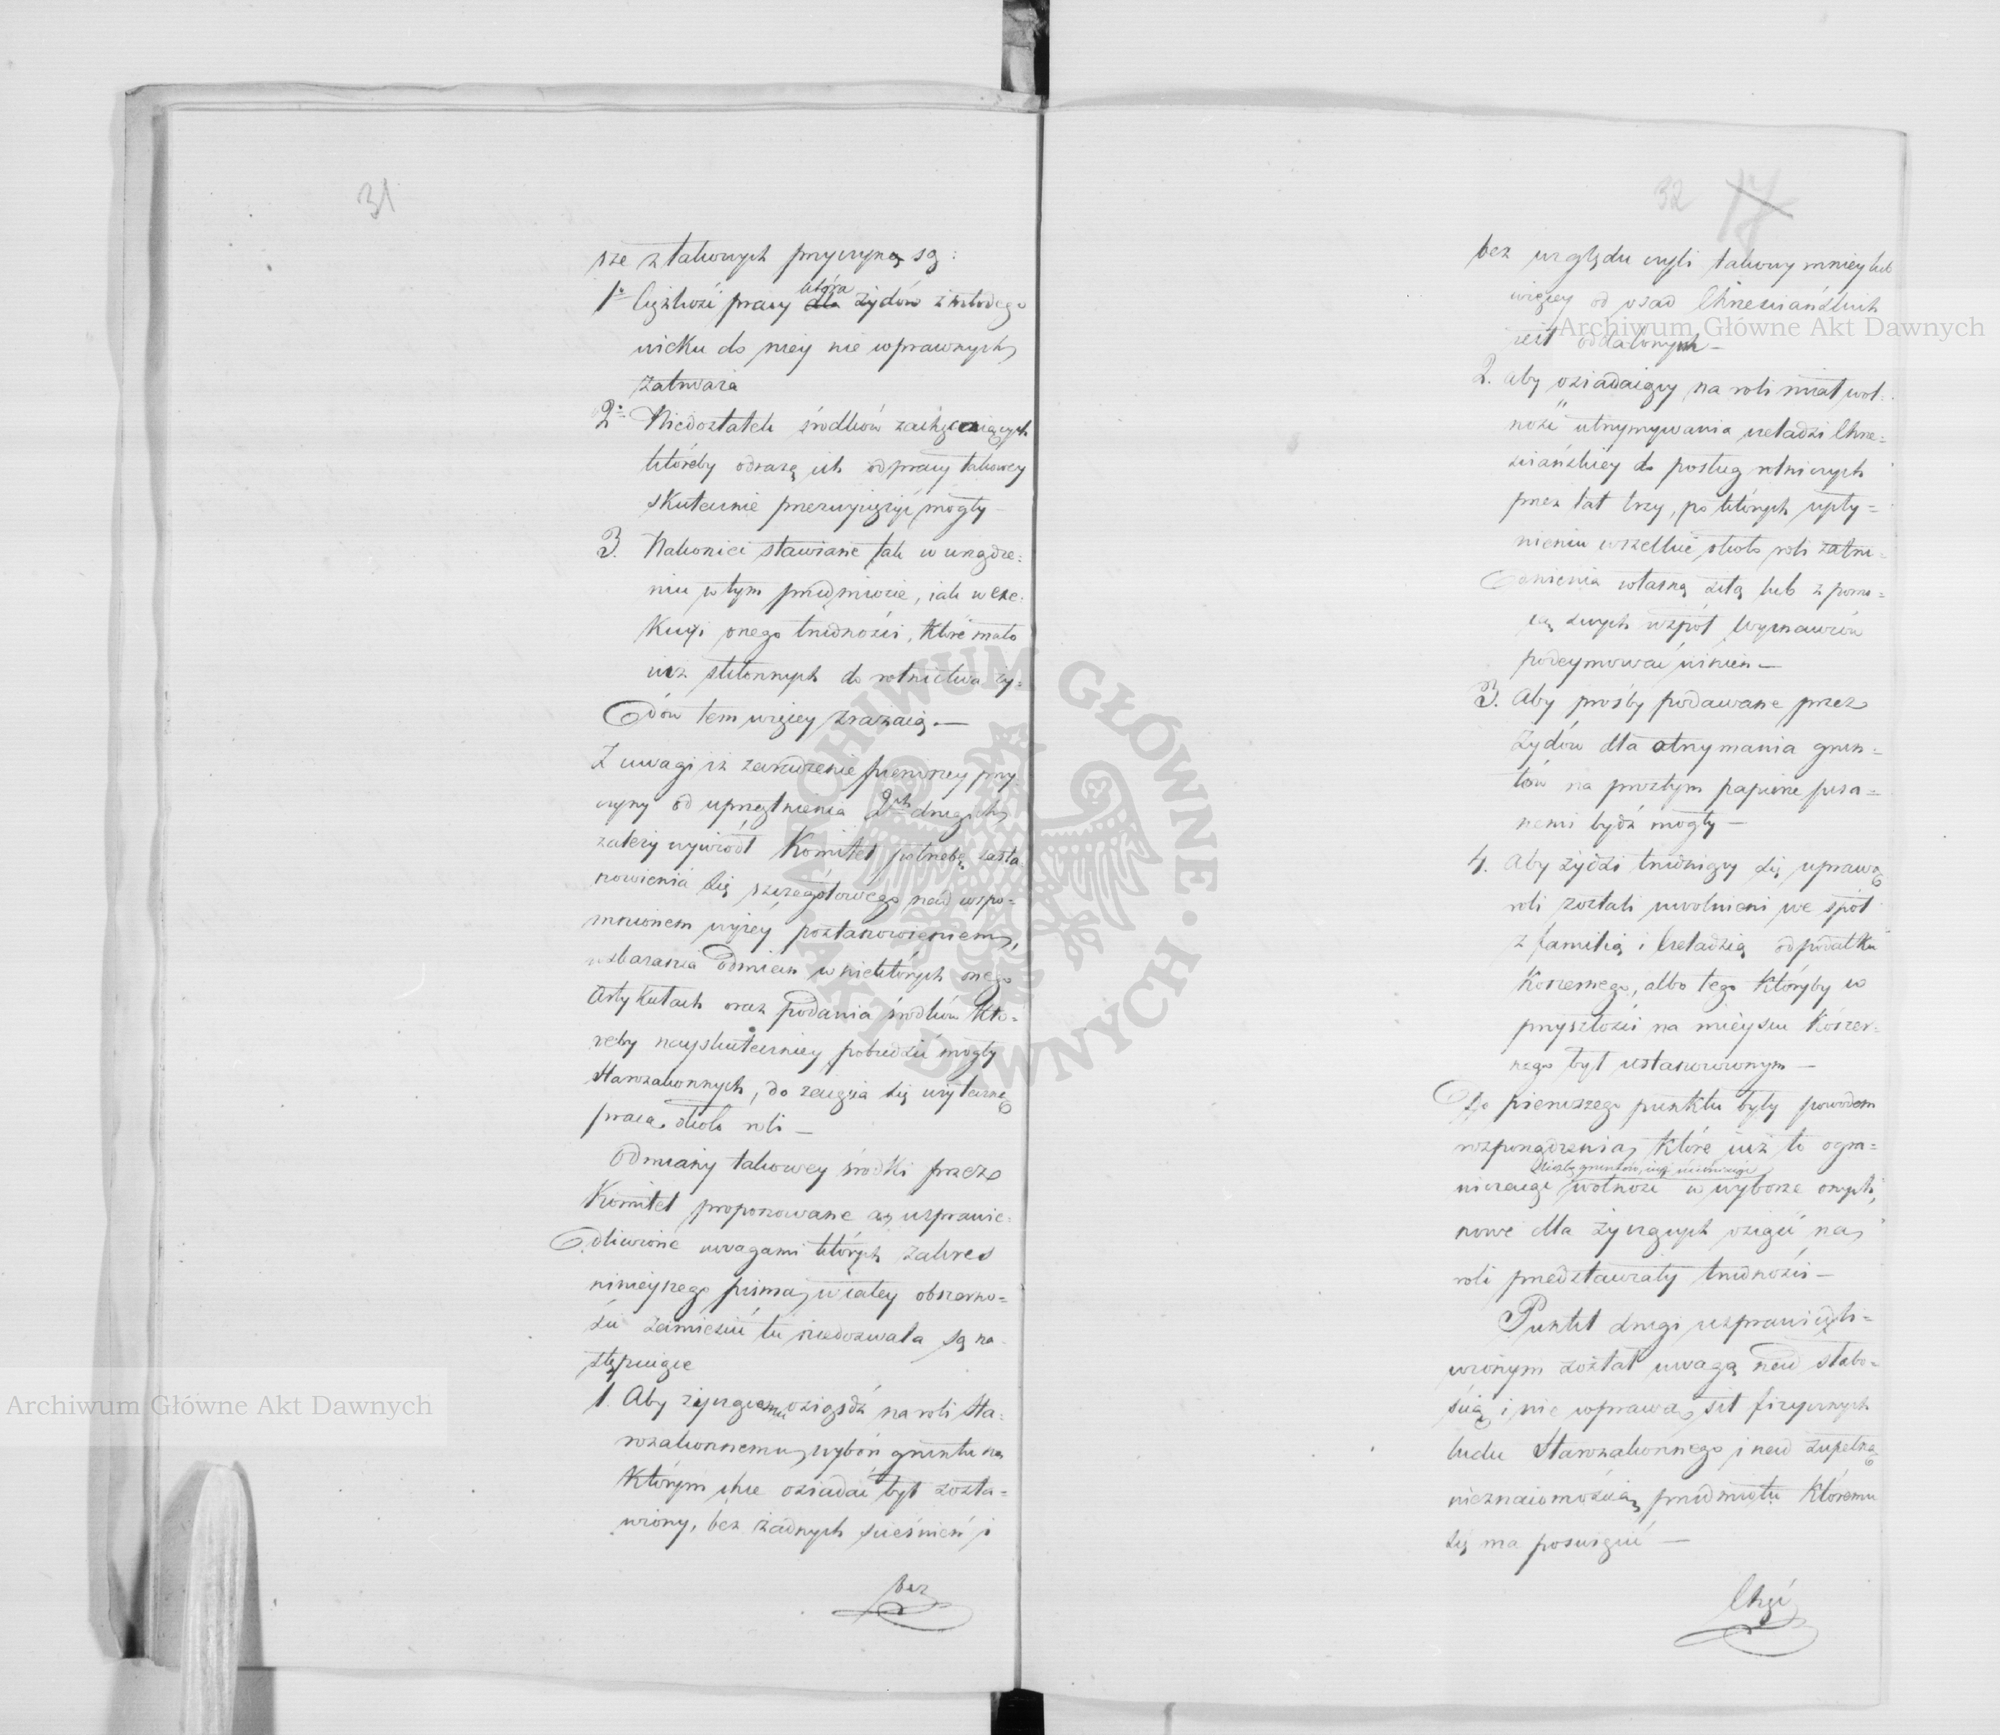 31
sze z takowych przyczyną są:
1o Ciężkość pracy dla która żydów z młodego
wieku do niey nie wprawnych
zatrważa
2o Niedostatek środków zachęcaiących
któreby odrazę ich od pracy takowey
skutecznie przezwyciężyć mogły
3. Nakoniec stawiane tak w urządze=
niu w tym przedmiocie, iak w exe=
kucyi onego trudności, które mało
iuż skłonnych do rolnictwa ży=
dów tem więcey zrażaią. —
Z uwagi iż zaradzenie pierwszey przy
czyny od uprzątnienia 2ch drugich
zależy wywiódł Komitet potrzebę zasta
nowienia się szczegółowego nad wspo=
mnionem wyżey postanowieniem,
wskazania odmian w niektórych onego
Artykułach oraz podania środków któ=
reby nayskuteczniey pobudzić mogły
Starozakonnych, do zaięcia się użyteczną
praca około roli —
Odmiany takowey środki przez
Komitet proponowane a uzprawie=
dliwione uwagami których zakres
ninieyszego pisma w całey obszerno=
ści zamieścić tu niedozwala są na=
stępuiące
1. Aby życzącemu osiąśdź na roli Sta=
rozakonnemu wybór gruntu na
którym chce osiadać był zosta=
wiony, bez żadnych ścieśnień i
bez
32 17
bez względu czyli takowy mniey lub
więcey od osad Chrześciańskich
iest oddalonych —
2. Aby osiadaiący na roli miał wol=
ność utrzymywania czeladzi Chrze=
ściańskiey do posług rolniczych
przez lat trzy, po których upły=
nieniu wszelkie około roli zatru=
dnienia własną siłą lub z pomo=
cą swych współ wyznawców
podeymować winien —
3. Aby prośby podawane przez
Żydów dla otrzymania grun=
tów na prostym papierze pisa=
nemi bydź mogły —
4. Aby żydzi trudniący się uprawą
roli zostali uwolnieni we spół
z familią i czeladzią od podatku
Koszernego, albo tego któryby w
przyszłości na mieyscu Koszer=
nego był ustanowionym —
Do pierwszego punktu były powodem
rozporządzenia, które iuż to ogra=
niczaiąc wolność w wyborze onych,
nowe dla życzących osiąść na
roli przedstawiały trudności —
Punkt drugi uzprawiedli=
wionym został uwagą nad słabo=
ścią i nie wprawą sił fizycznych
ludu Starozakonnego i nad zupełną
nieznaiomością przedmiotu któremu
się ma poświęcić —
Chęć
Archiwum Główne Akt Dawnych
Archiwum Główne Akt Dawnych
ARCHIWUM GŁÓWNE AKT DAWNYCH